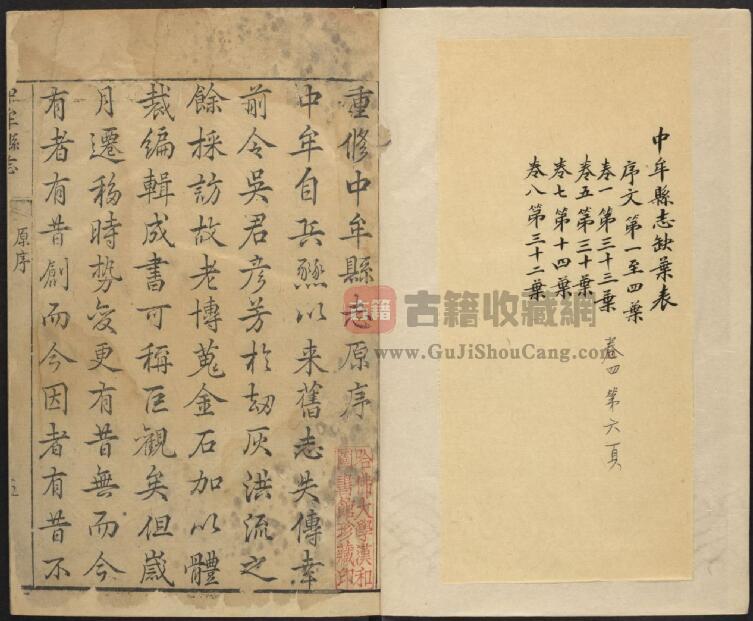 中牟縣志缺葉表
序文第一至四葉
卷一第三十三葉
卷五第三十葉
卷七第十四葉
卷八第三十二葉
卷四第六頁
重修中牟縣志原序
中牟自兵燹以来舊志失傳幸
前令吳君彥芳於劫灰洪流之
餘採訪故老博蒐金石加以體
裁編輯成書可稱巨觀矣但歲
月遷移時勢變更有昔無而今
有者有昔創而今因者有昔不
牟縣志
原序
五
哈佛大學漢和
圖書館珍藏印
古籍 古籍收藏網
www.GuJiShouCang.com